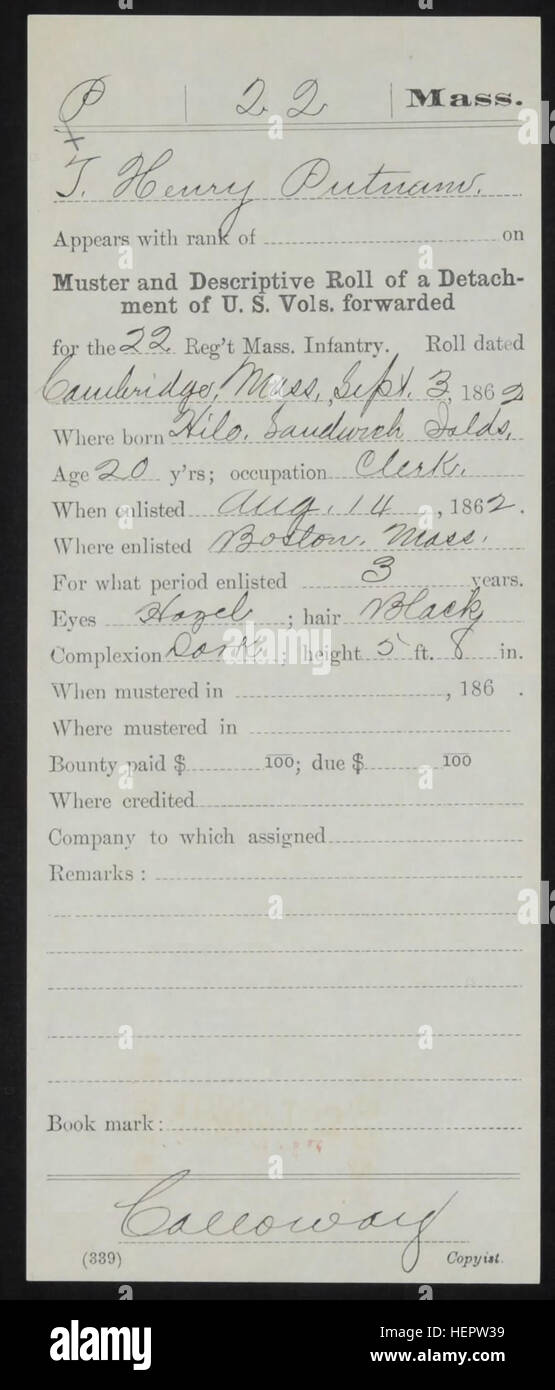 P | 22 | Mass.
x
T. Henry Putnam.
Appears with rank of on
Muster and Descriptive Roll of a Detach-
ment of U. S. Vols. forwarded
for the 22 Reg't Mass. Infantry. Roll dated
Cambridge, Mass, Sept. 3, 1862
Where born Hilo. Sandwich Islds,
Age 20 y'rs; occupation Clerk.
When enlisted Aug. 14, 1862.
Where enlisted Boston. Mass.
For what period enlisted 3 years.
Eyes Hazel; hair Black
Complexion Dark; height 5 ft. 8 in.
When mustered in , 186 .
Where mustered in
Bounty paid $ 100; due $ 100
Where credited
Company to which assigned
Remarks :
Book mark :
Calloway
(339) Copyist.
alamy
Image ID: HEPW39
www.alamy.com